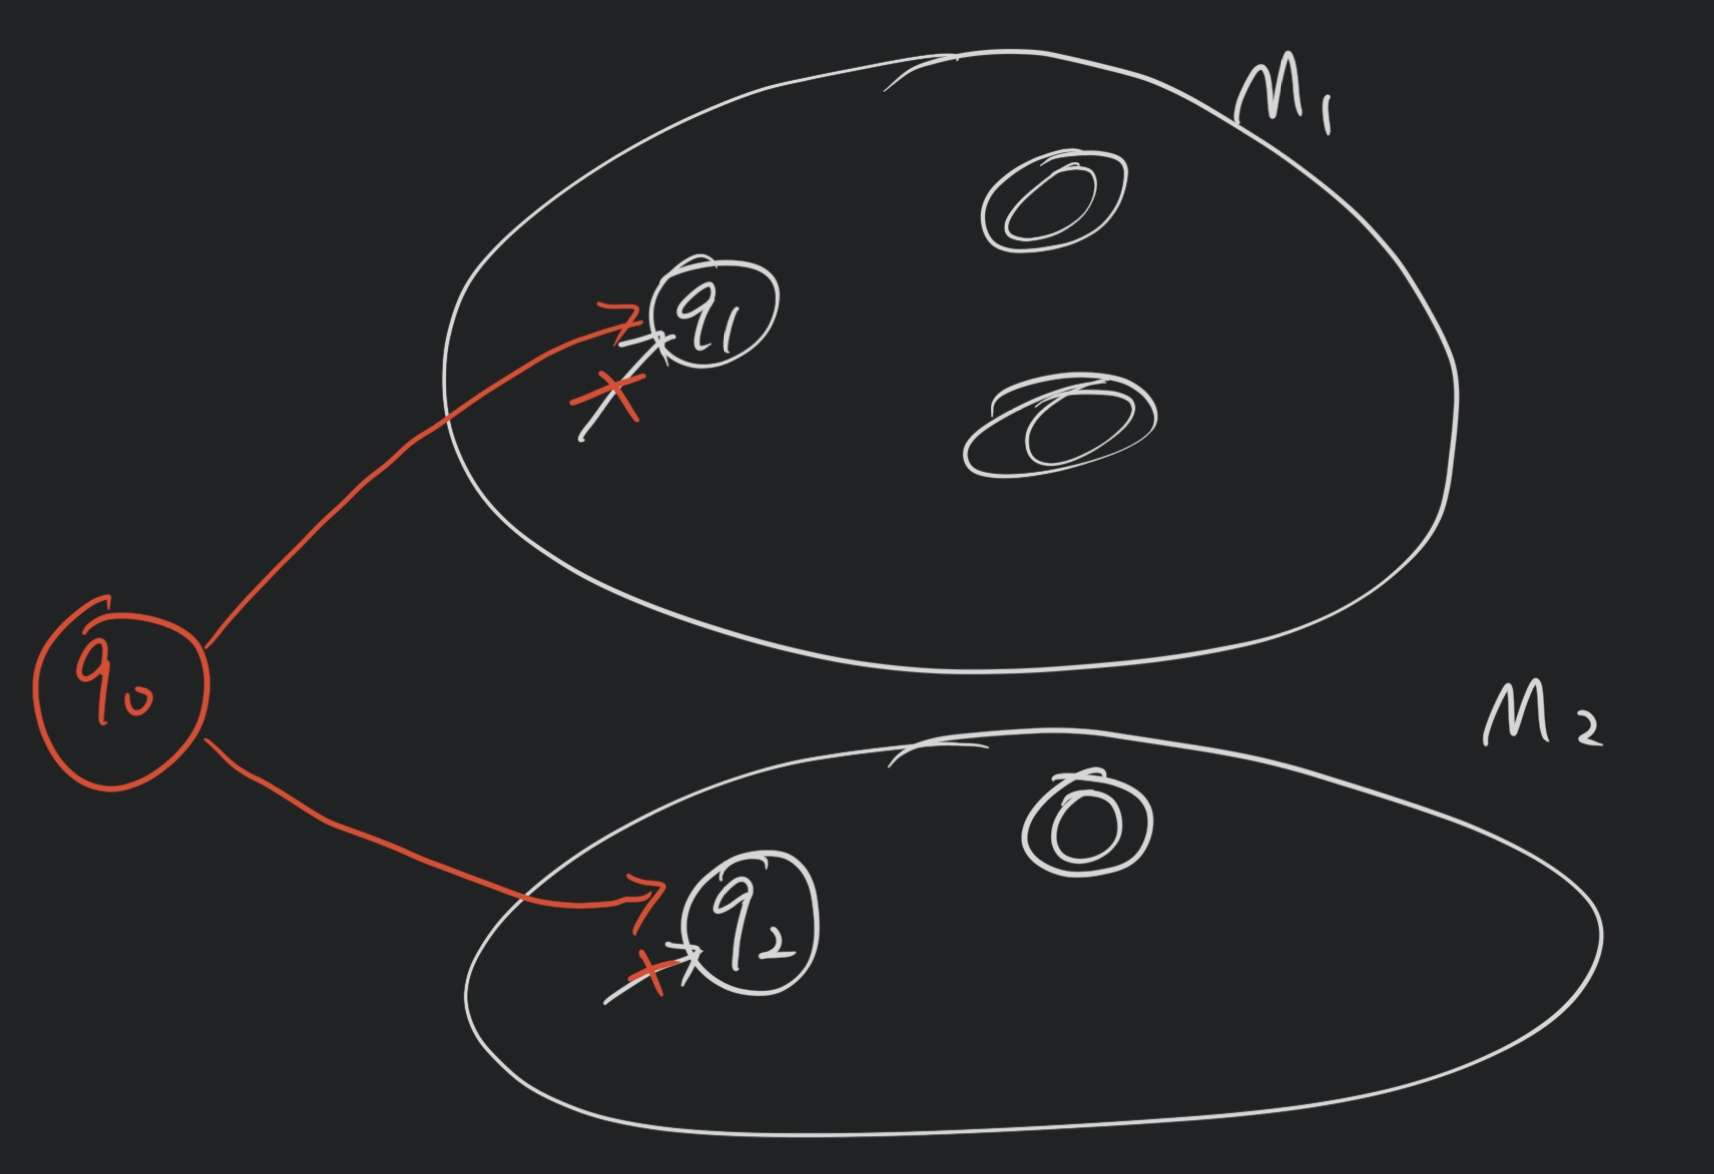 M₁
q₁
q₀
M₂
q₂